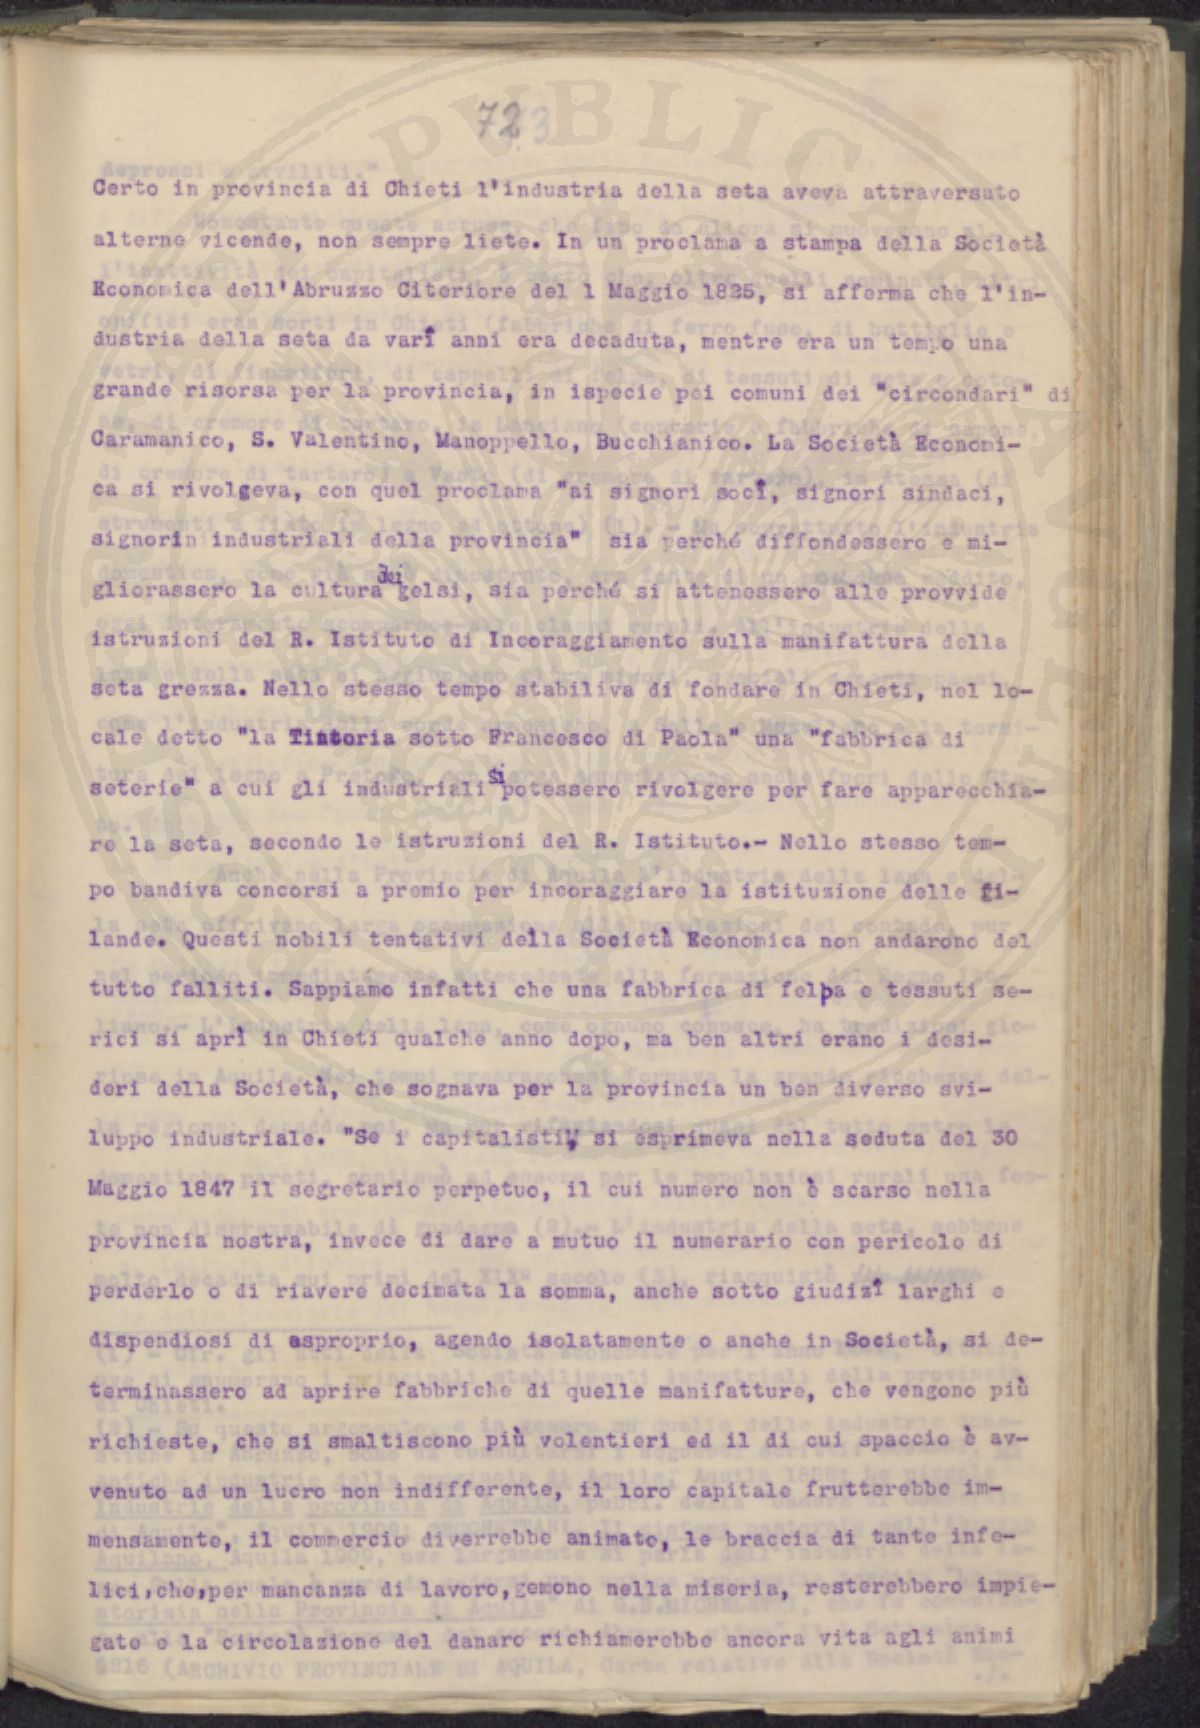 72
Certo in provincia di Chieti l'industria della seta aveva attraversato
alterne vicende, non sempre liete. In un proclama a stampa della Società
Economica dell'Abruzzo Citeriore del 1 Maggio 1825, si afferma che l'in-
dustria della seta da varî anni era decaduta, mentre era un tempo una
grande risorsa per la provincia, in ispecie pei comuni dei "circondari" di
Caramanico, S. Valentino, Manoppello, Bucchianico. La Società Economi-
ca si rivolgeva, con quel proclama "ai signori socî, signori sindaci,
signorin industriali della provincia" sia perché diffondessero e mi-
gliorassero la cultura dei gelsi, sia perché si attenessero alle provvide
istruzioni del R. Istituto di Incoraggiamento sulla manifattura della
seta grezza. Nello stesso tempo stabiliva di fondare in Chieti, nel lo-
cale detto "la Tintoria sotto Francesco di Paola" una "fabbrica di
seterie" a cui gli industriali si potessero rivolgere per fare apparecchia-
re la seta, secondo le istruzioni del R. Istituto.- Nello stesso tem-
po bandiva concorsi a premio per incoraggiare la istituzione delle fi-
lande. Questi nobili tentativi della Società Economica non andarono del
tutto falliti. Sappiamo infatti che una fabbrica di felpa e tessuti se-
rici si aprì in Chieti qualche anno dopo, ma ben altri erano i desi-
deri della Società, che sognava per la provincia un ben diverso svi-
luppo industriale. "Se i capitalisti", si esprimeva nella seduta del 30
Maggio 1847 il segretario perpetuo, il cui numero non è scarso nella
provincia nostra, invece di dare a mutuo il numerario con pericolo di
perderlo o di riavere decimata la somma, anche sotto giudizî larghi e
dispendiosi di esproprio, agendo isolatamente o anche in Società, si de-
terminassero ad aprire fabbriche di quelle manifatture, che vengono più
richieste, che si smaltiscono più volentieri ed il di cui spaccio è av-
venuto ad un lucro non indifferente, il loro capitale frutterebbe im-
mensamente, il commercio diverrebbe animato, le braccia di tante infe-
lici,che,per mancanza di lavoro,gemono nella miseria, resterebbero impie-
gate e la circolazione del danaro richiamerebbe ancora vita agli animi